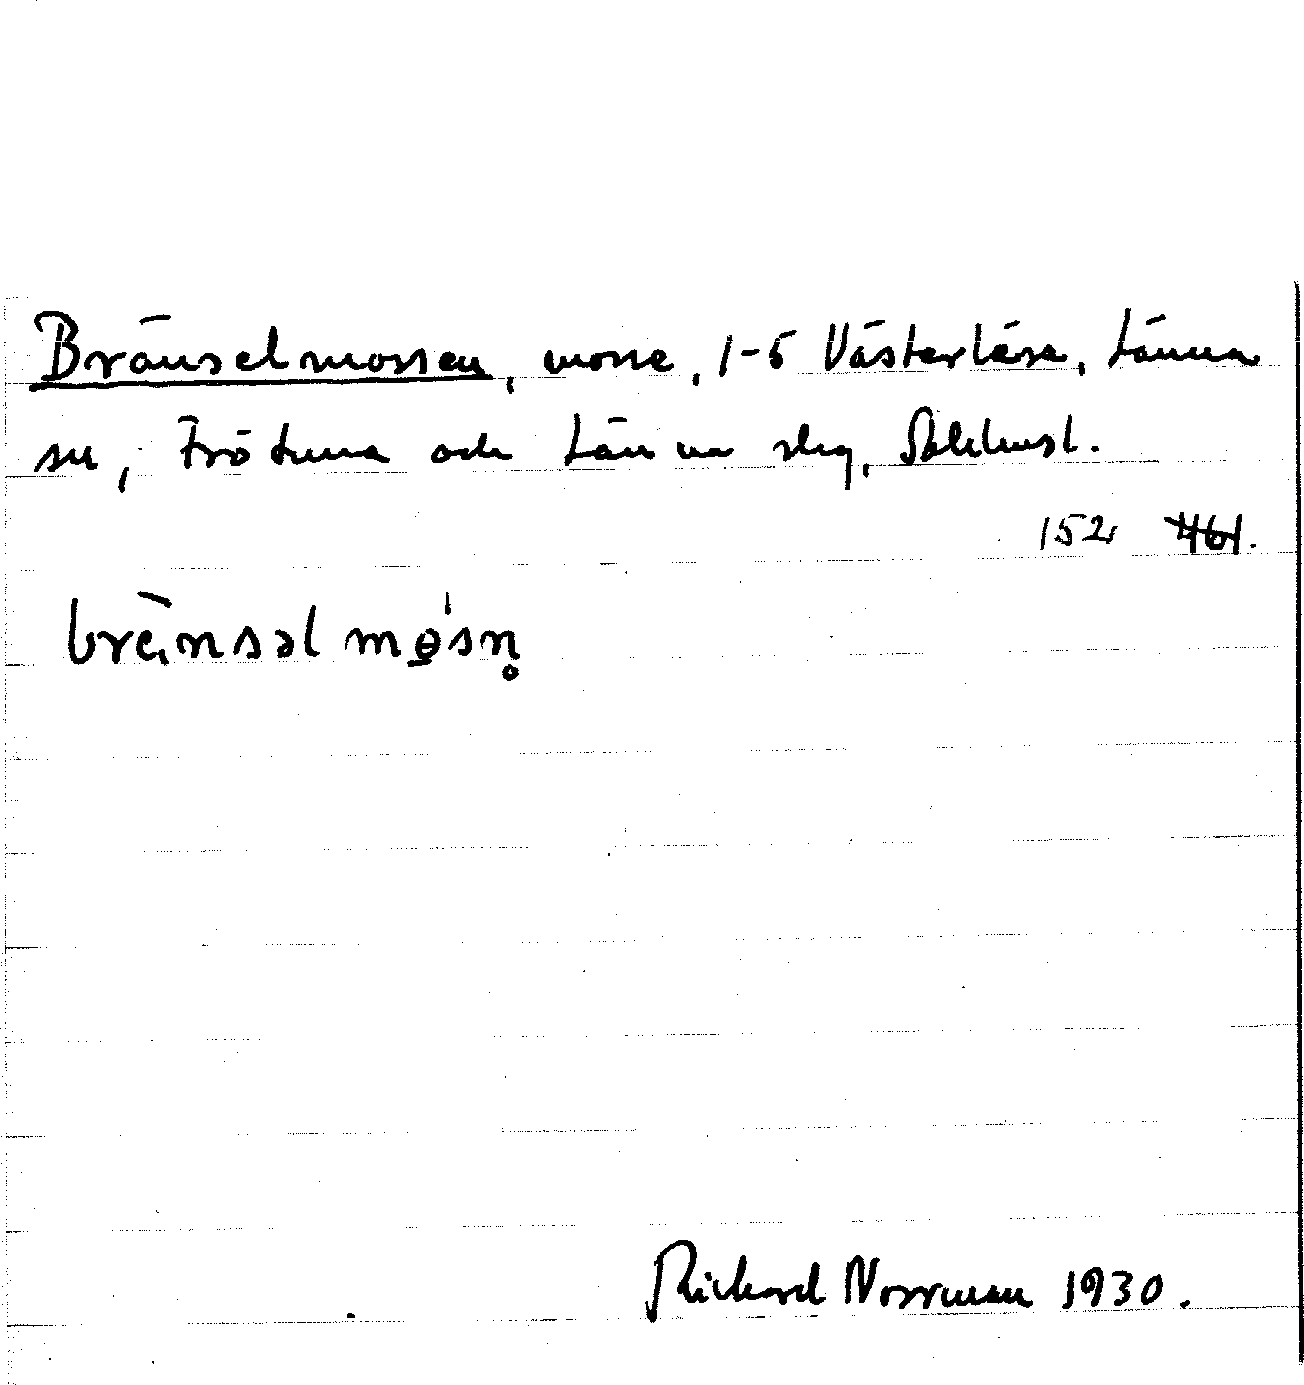 Bränselmossen, mosse, 1-5 Västerlåsa, Länna
sn, Frötuna och Länna slg,
152 461.
brä̀nsəl mo̲̍sn̥
Richard Norrman 1930.